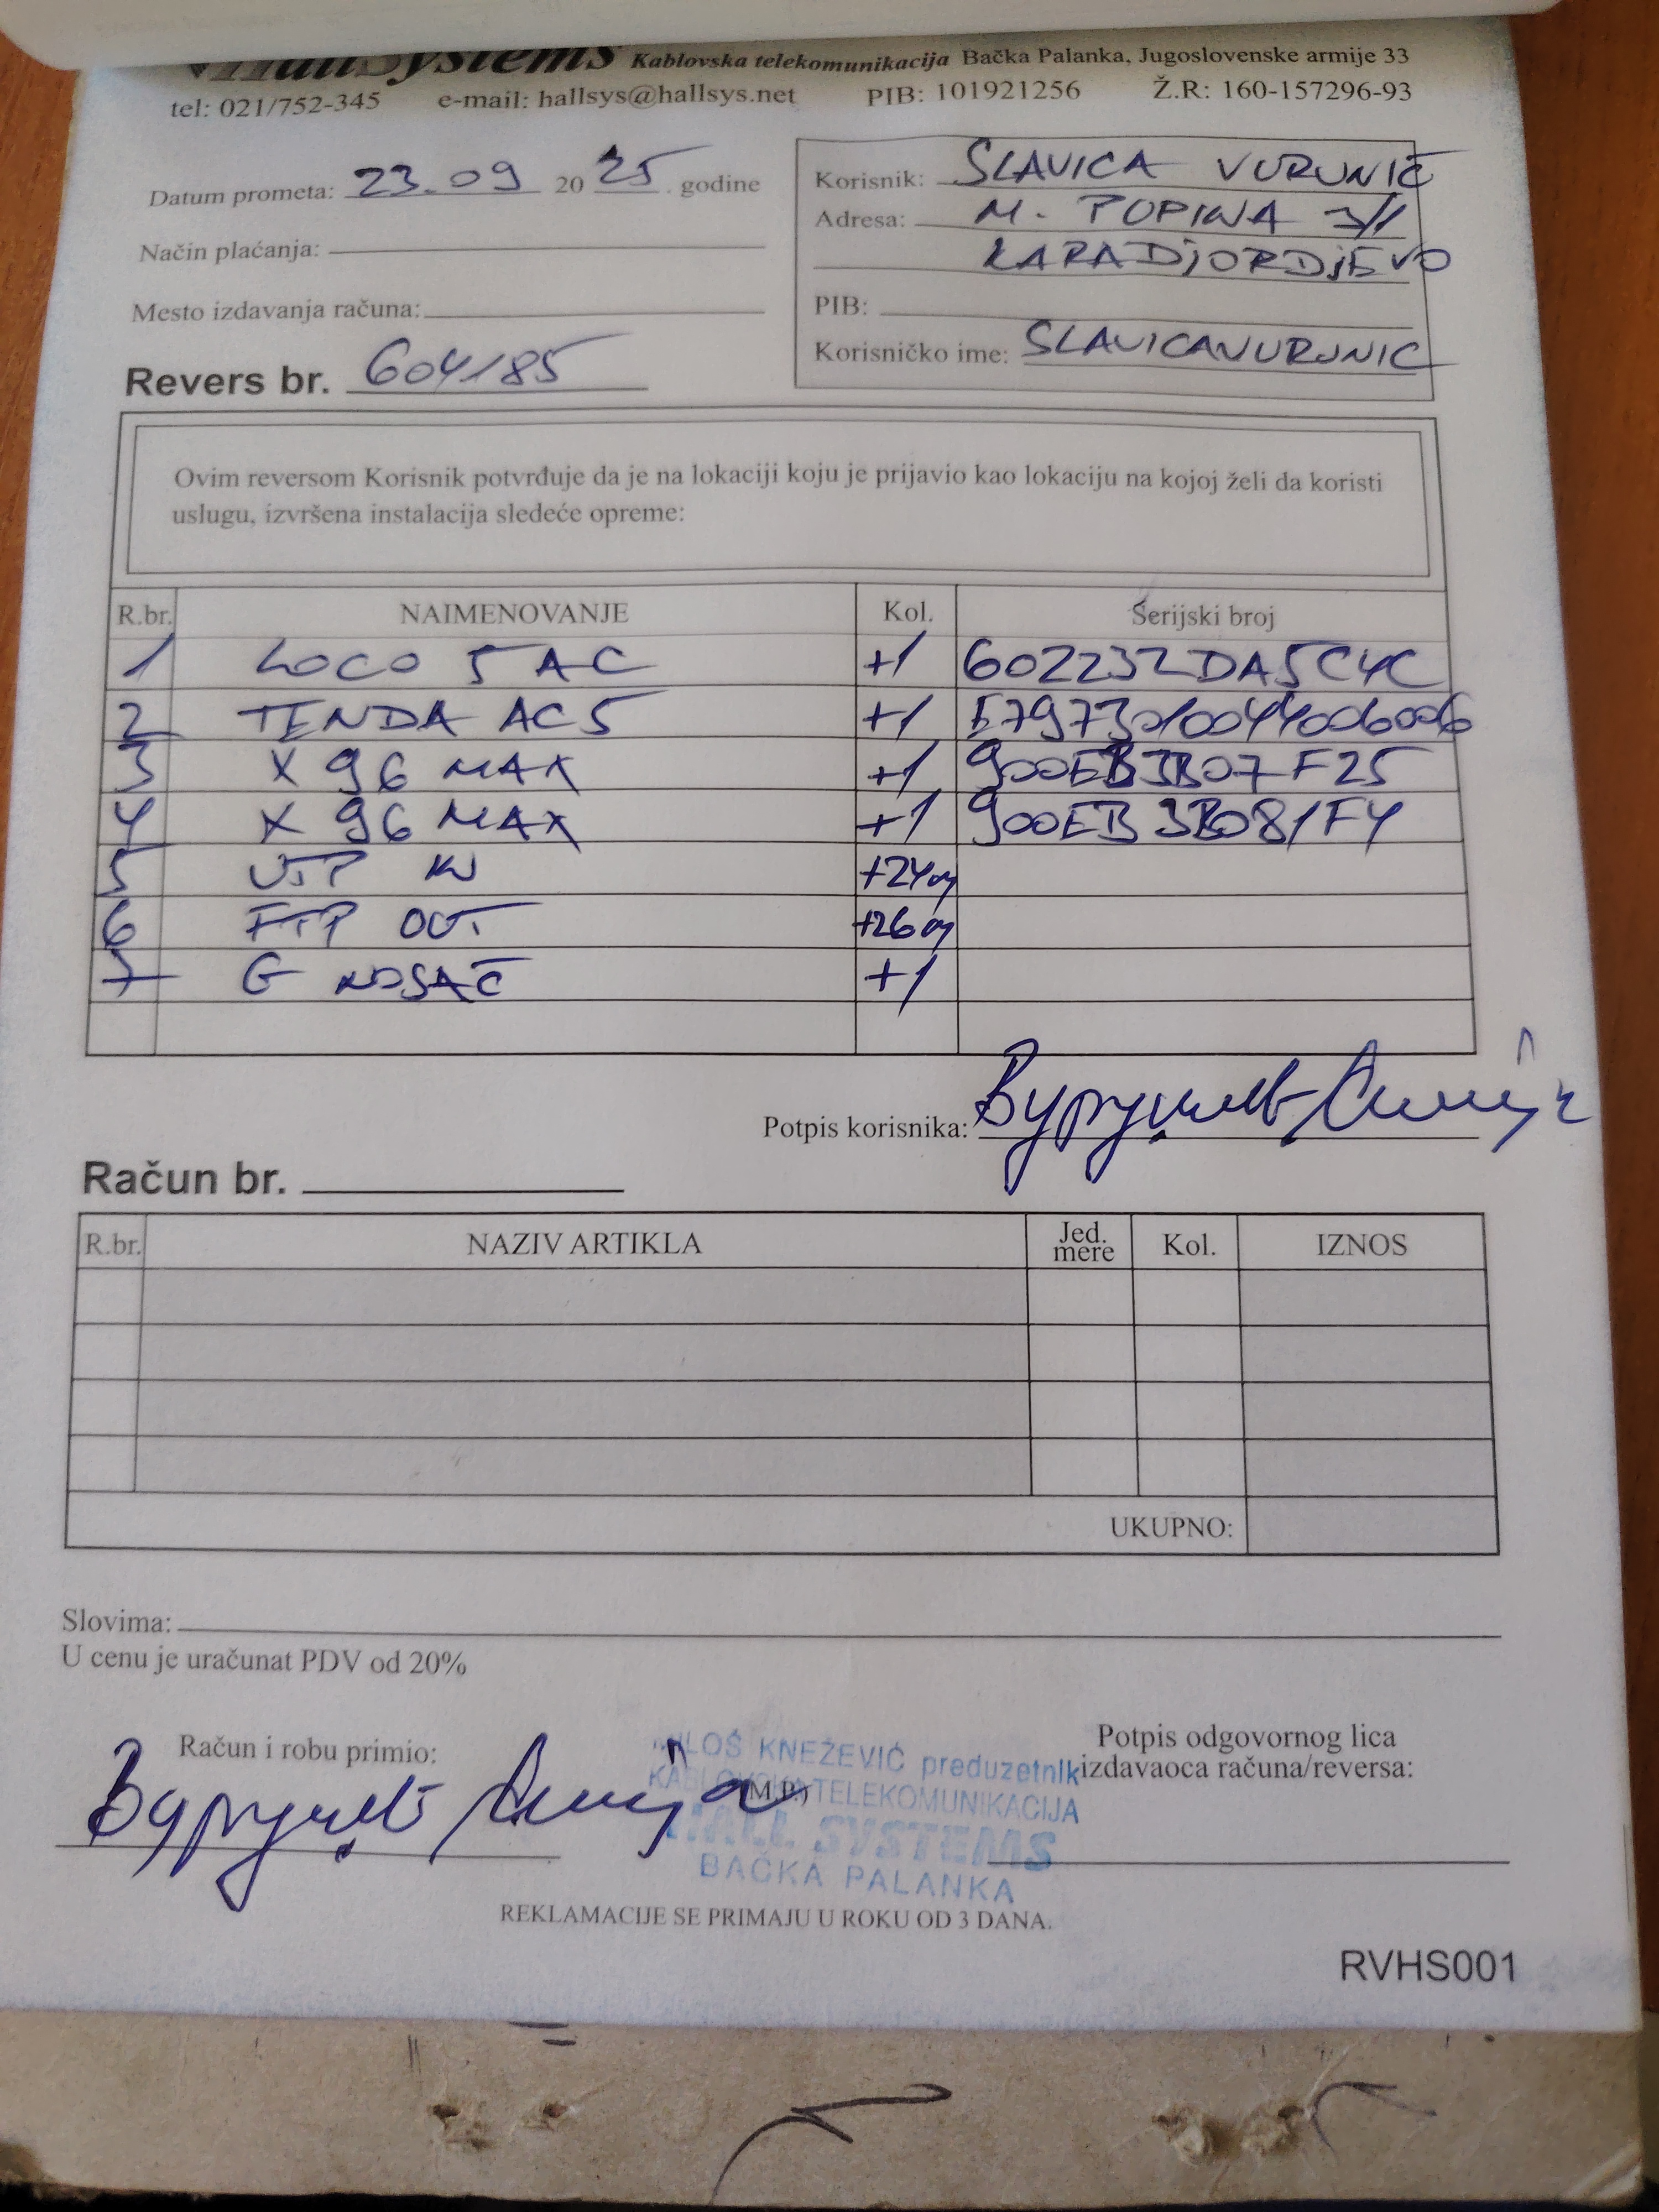 HallSystems Kablovska telekomunikacija Bačka Palanka, Jugoslovenske armije 33
tel: 021/752-345 e-mail: hallsys@hallsys.net PIB: 101921256 Ž.R: 160-157296-93
Datum prometa: 23.09 2025. godine
Način plaćanja:
Mesto izdavanja računa:
Revers br. 604185
Korisnik: SLAVICA VURUNIĆ
Adresa: M. POPINA 3/1
KARADJORDJEVO
PIB:
Korisničko ime: SLAVICAVURUNIC
Ovim reversom Korisnik potvrđuje da je na lokaciji koju je prijavio kao lokaciju na kojoj želi da koristi
uslugu, izvršena instalacija sledeće opreme:
R.br. NAIMENOVANJE Kol. Serijski broj
1 LOCO 5 AC +1 602232DA5C4C
2 TENDA AC5 +1 E7973010044006006
3 X 96 MAX +1 900EB3B07F25
4 X 96 MAX +1 900EB3B081F4
5 UTP IN +24m
6 FTP OUT +26m
7 G NOSAČ +1
Potpis korisnika:
Račun br.
R.br. NAZIV ARTIKLA Jed. mere Kol. IZNOS
UKUPNO:
Slovima:
U cenu je uračunat PDV od 20%
Račun i robu primio:
(M.P.)
MILOŠ KNEŽEVIĆ preduzetnik
KABLOVSKA TELEKOMUNIKACIJA
HALL SYSTEMS
BAČKA PALANKA
Potpis odgovornog lica
izdavaoca računa/reversa:
REKLAMACIJE SE PRIMAJU U ROKU OD 3 DANA.
RVHS001